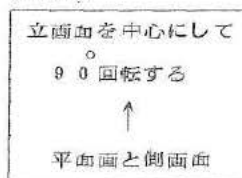 立画面を中心にして
90°回転する
↑
平面画と側画面